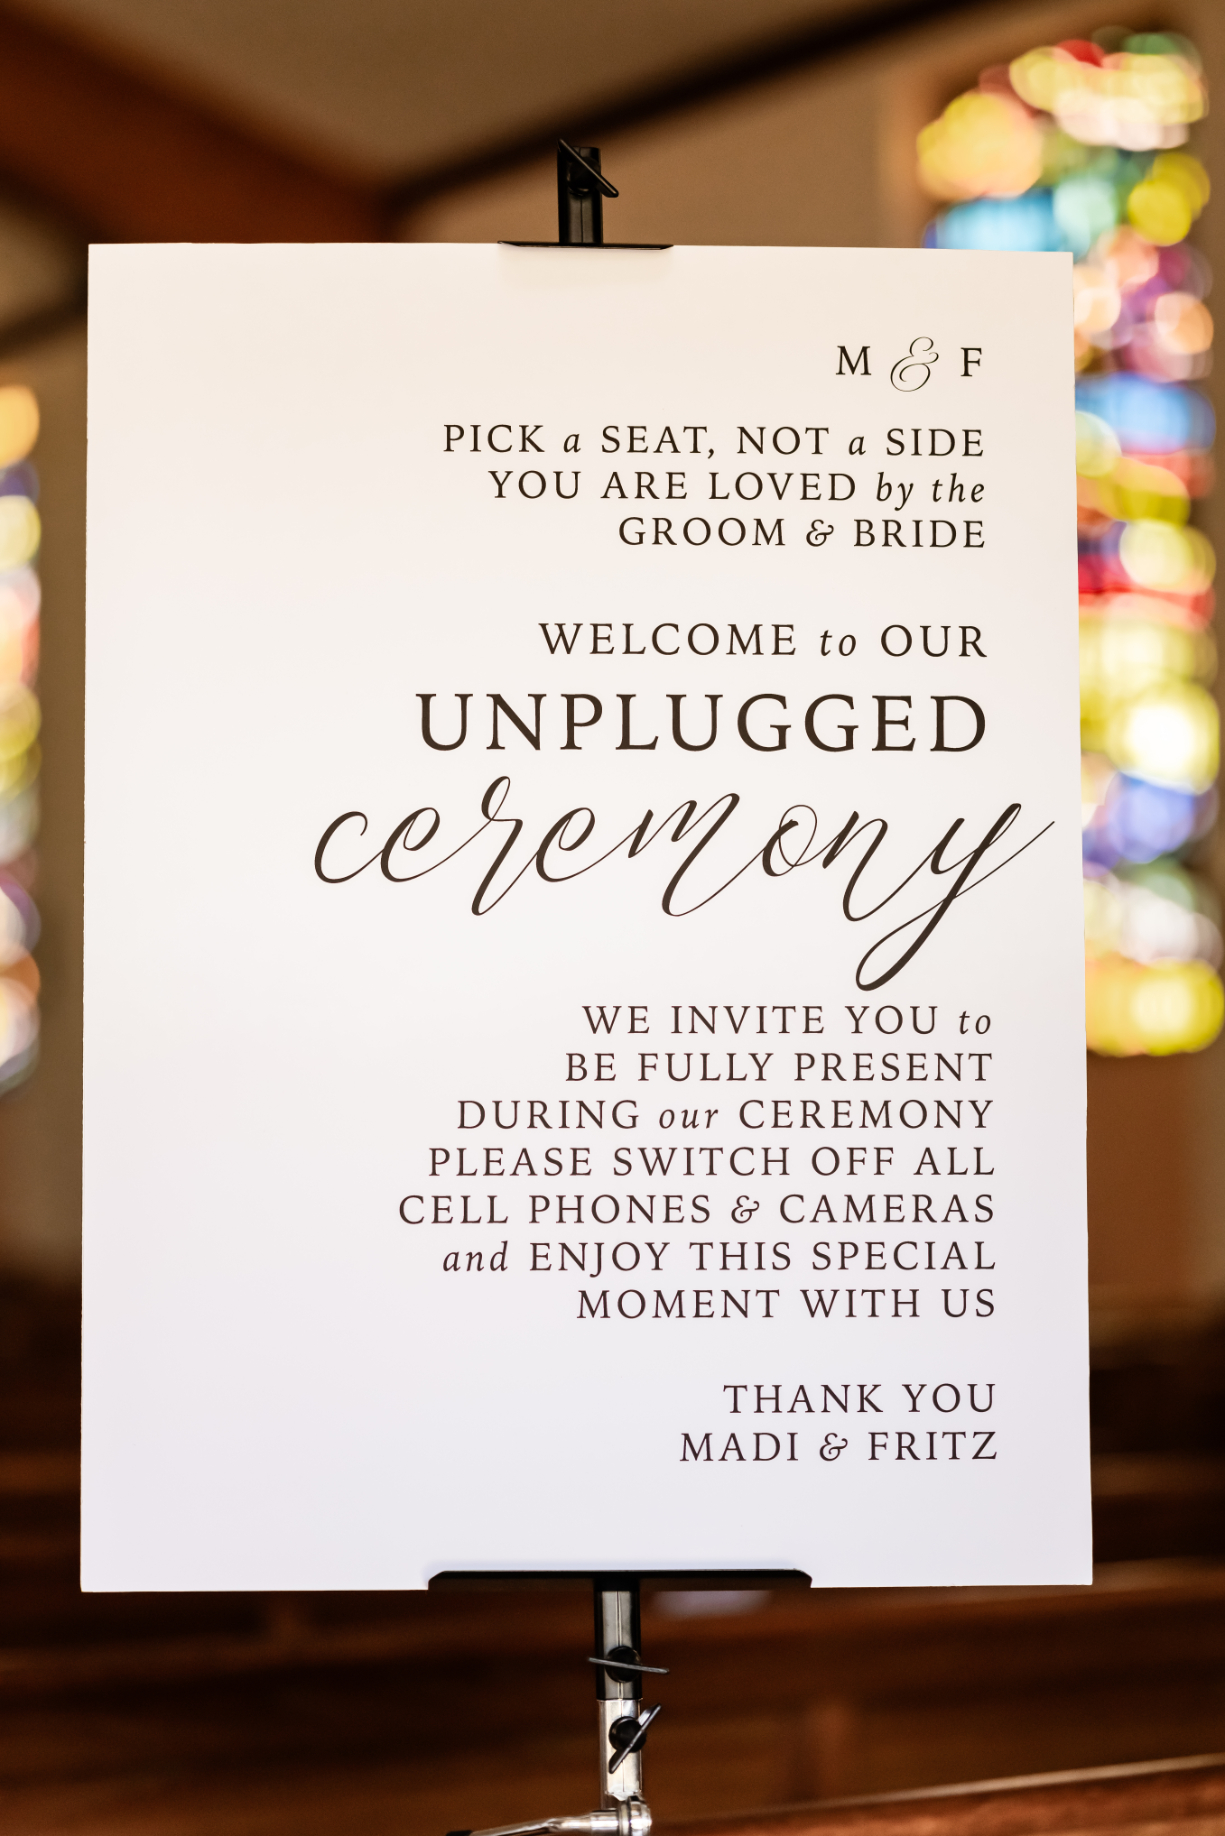 M & F
PICK a SEAT, NOT a SIDE
YOU ARE LOVED by the
GROOM & BRIDE
WELCOME to OUR
UNPLUGGED
ceremony
WE INVITE YOU to
BE FULLY PRESENT
DURING our CEREMONY
PLEASE SWITCH OFF ALL
CELL PHONES & CAMERAS
and ENJOY THIS SPECIAL
MOMENT WITH US
THANK YOU
MADI & FRITZ